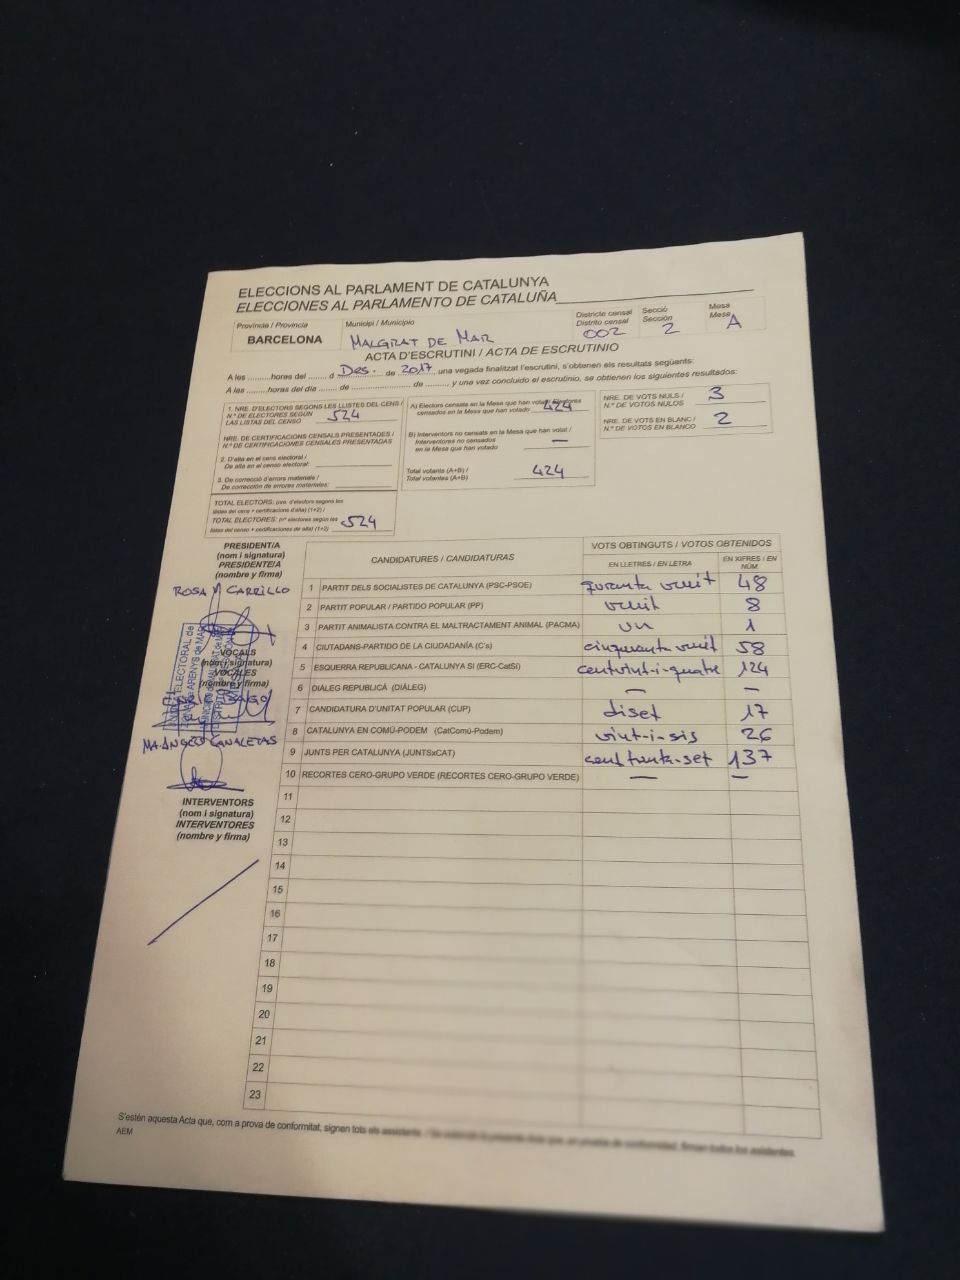 ELECCIONS AL PARLAMENT DE CATALUNYA
ELECCIONES AL PARLAMENTO DE CATALUÑA
Província / Provincia
BARCELONA
Municipi / Municipio
MALGRAT DE MAR
Districte censal
Distrito censal
002
Secció
Sección
2
Mesa
Mesa
A
ACTA D'ESCRUTINI / ACTA DE ESCRUTINIO
A les ..........hores del ........ d Des. de 2017, una vegada finalitzat l'escrutini, s'obtenen els resultats següents:
A las ..........horas del día ....... de ........................... de ........., y una vez concluido el escrutinio, se obtienen los siguientes resultados:
1. NRE. D'ELECTORS SEGONS LES LLISTES DEL CENS /
N.º DE ELECTORES SEGÚN
LAS LISTAS DEL CENSO
524
NRE. DE CERTIFICACIONS CENSALS PRESENTADES /
N.º DE CERTIFICACIONES CENSALES PRESENTADAS
2. D'alta en el cens electoral /
De alta en el censo electoral:
3. De correcció d'errors materials /
De corrección de errores materiales:
TOTAL ELECTORS: (nre. d'electors segons les
llistes del cens + certificacions d'alta) (1+2) /
TOTAL ELECTORES: (nº electores según las
listas del censo + certificaciones de alta) (1+2)
524
A) Electors censats en la Mesa que han votat / Electores
censados en la Mesa que han votado
424
B) Interventors no censats en la Mesa que han votat /
Interventores no censados
en la Mesa que han votado
—
Total votants (A+B) /
Total votantes (A+B)
424
NRE. DE VOTS NULS /
N.º DE VOTOS NULOS
3
NRE. DE VOTS EN BLANC /
N.º DE VOTOS EN BLANCO
2
PRESIDENT/A
(nom i signatura)
PRESIDENTE/A
(nombre y firma)
ROSA Mª CARRILLO
VOCALS
(nom i signatura)
VOCALES
(nombre y firma)
Mª ÀNGELS CANALETAS
INTERVENTORS
(nom i signatura)
INTERVENTORES
(nombre y firma)
CANDIDATURES / CANDIDATURAS
VOTS OBTINGUTS / VOTOS OBTENIDOS
EN LLETRES / EN LETRA
EN XIFRES / EN NÚM.
1 PARTIT DELS SOCIALISTES DE CATALUNYA (PSC-PSOE) quranta vuit 48
2 PARTIT POPULAR / PARTIDO POPULAR (PP) vuit 8
3 PARTIT ANIMALISTA CONTRA EL MALTRACTAMENT ANIMAL (PACMA) un 1
4 CIUTADANS-PARTIDO DE LA CIUDADANÍA (C's) cinquanta vuit 58
5 ESQUERRA REPUBLICANA - CATALUNYA SÍ (ERC-CatSí) centvint-i-quatre 124
6 DIÀLEG REPUBLICÀ (DIÀLEG) — —
7 CANDIDATURA D'UNITAT POPULAR (CUP) diset 17
8 CATALUNYA EN COMÚ-PODEM (CatComú-Podem) vint-i-sis 26
9 JUNTS PER CATALUNYA (JUNTSxCAT) cent trenta-set 137
10 RECORTES CERO-GRUPO VERDE (RECORTES CERO-GRUPO VERDE) — —
11
12
13
14
15
16
17
18
19
20
21
22
23
S'estén aquesta Acta que, com a prova de conformitat, signen tots els assistents. / Se extiende la presente Acta que, en prueba de conformidad, firman todos los asistentes.
AEM